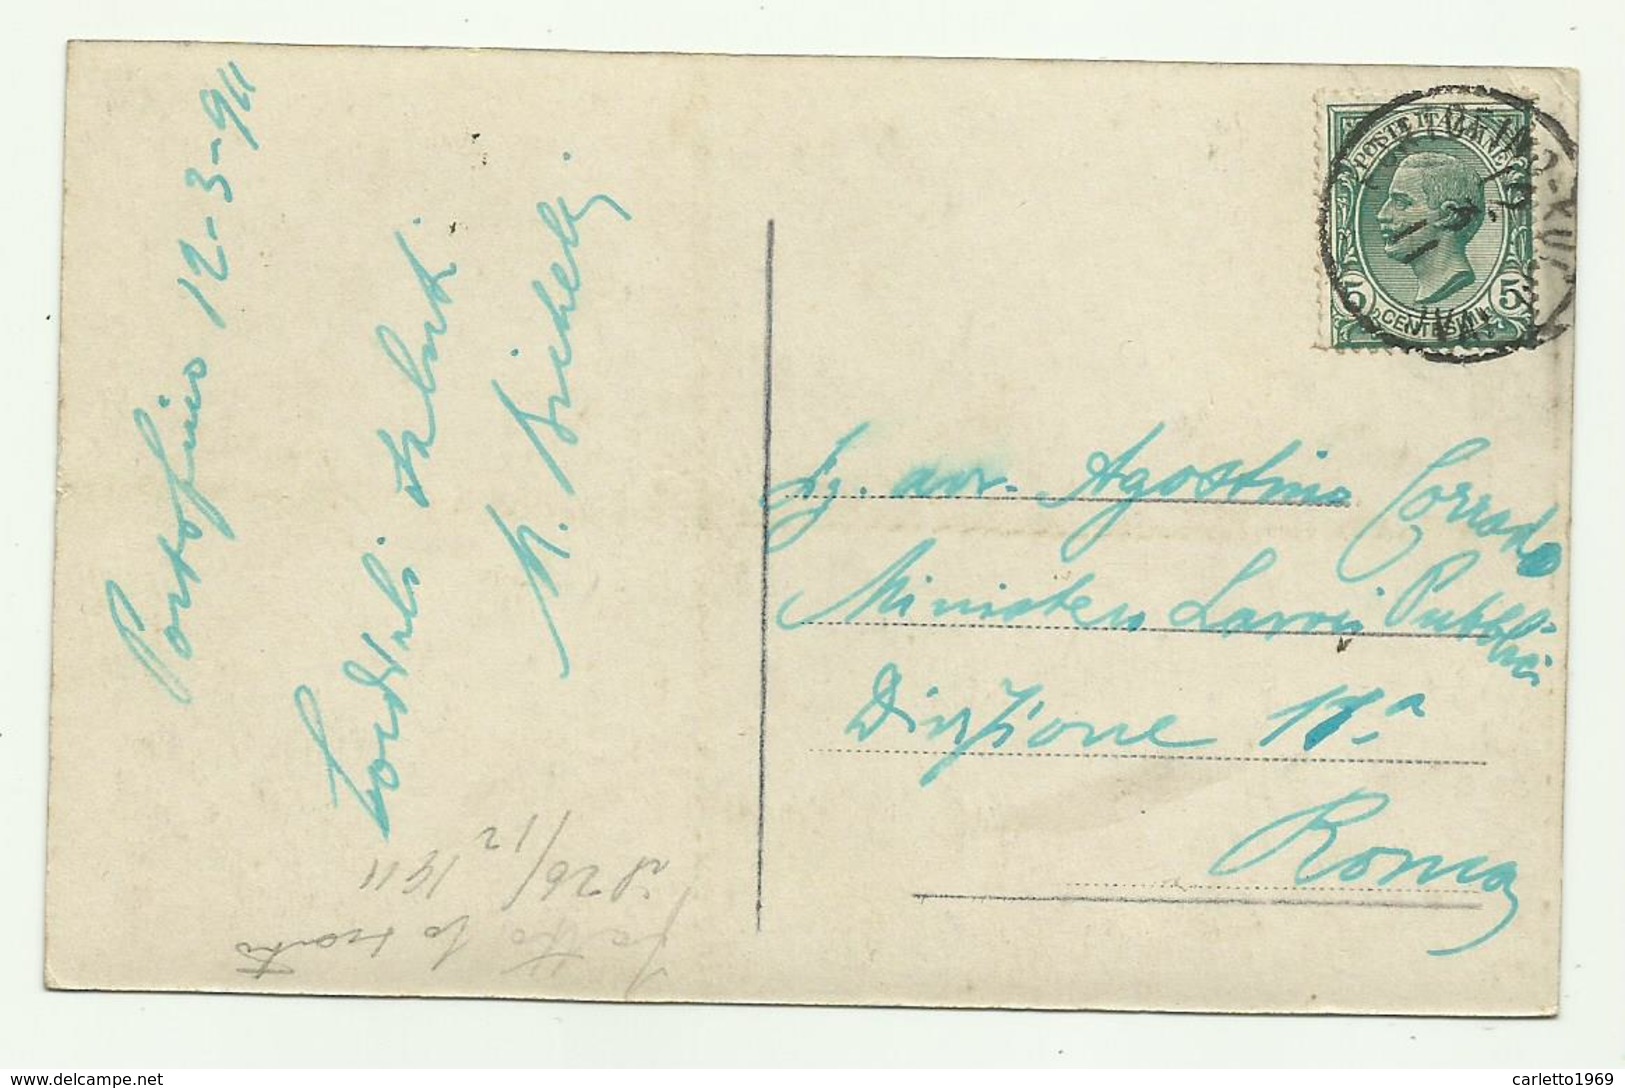 Portofino 12-3-911
Cordiali saluti
POSTE ITALIANE
5 CENTESIMI 5
Sig. avv. Agostino Corrado
Ministero Lavori Pubblici
Divisione 17.a
Roma
fatto lo
il 26/12
1911
delcampe.net
carletto1969